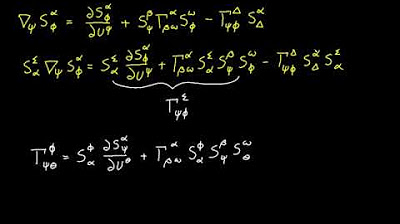 ∇_ψ S^α_φ = ∂S^α_φ/∂u^ψ + S^β_ψ Γ^α_βω S^ω_φ − Γ^Δ_ψφ S^α_Δ
S^Σ_α ∇_ψ S^α_φ = S^Σ_α ∂S^α_φ/∂u^ψ + Γ^α_βω S^Σ_α S^β_ψ S^ω_φ − Γ^Δ_ψφ S^α_Δ S^Σ_α
Γ^Σ_ψφ
Γ^φ_ψθ = S^φ_α ∂S^α_ψ/∂u^θ + Γ^α_βω S^φ_α S^β_ψ S^ω_θ